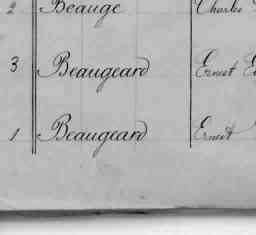 2 Beauge Charles
3 Beaugeard Ernest
1 Beaugeard Ernest